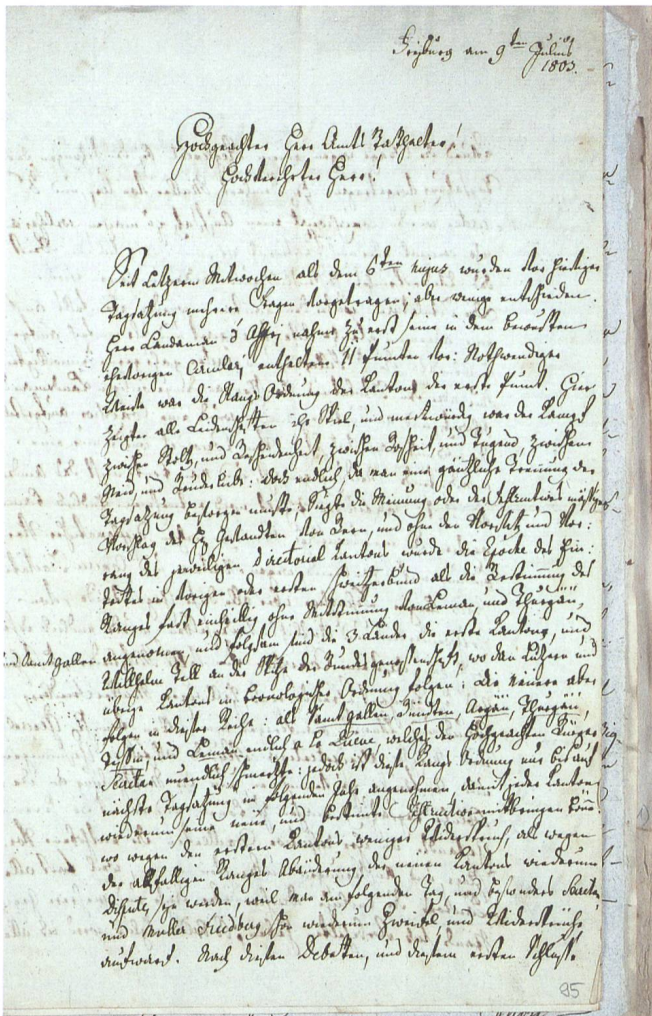 Freyburg am 9ten Julius
1803.
Hochgeachter Herr Amts Statthalter!
Hochverehrter Herr!
Seit letztern Mitwochen als dem 6ten hujus wurden vor hiesiger
Tagsatzung mehrere Fragen vorgetragen, aber wenige entschieden.
Herr Landaman d'Affry nahme zu erst seine in dem bewusten
ehevorigen Circular enthaltene 11 Puncten vor: Nothwendiger
Weise war die Rangs Ordnung der Kantons der erste Punct. Hier
zeigten all Leidenschaften ihr Spiel, und merkwürdig war der Kampf
zwischen Stolz, und Bescheidenheit, zwischen Bosheit und Tugend zwischen
Neid, und Bruderliebe: doch endlich, da man eine gänzliche Trennung der
Tagsatzung besorgen muste, siegte die Meinung oder der
Vorschlag des Gesandten von Bern, und ohne den Vorsitz und Vor:
rang des jeweiligen Directorial Kantons wurde die Epoche des Ein:
trittes in vorigen oder ersten Schweitzerbund als die Bestimmung des
Ranges fast einhellig ohne Mitstimmung von Leman, und Thurgäu,
und Sanct gallen angenomen, und folgsam sind die 3 Länder die erste Kantons, und
Willhelm Tell an der Spitze der Bundsgenossenschaft, wo dan Luzern und
übrige Kantons in cronologischer Ordnung folgen: die neuere aber
folgen in dieser Reihe: als Sanct gallen, Bündten, Argäu, Thurgäu
Tessin, und Leman endlich a la Queue welches den Hochgeachten Bürger
Secretan schmerzte: jedoch ist diese Rangs Ordnung nur bis auf
nächste Tagsatzung im folgenden Jahr angenohmen, damit jeder Kanton
wiederum seine neue, und bestimte Instructionen mitbringen könne
wo wegen den erstern Kantons weniger Widerspruch, als wegen
der allfälligen Ranges Abänderung der neuen Kantons wiederum
Dispute seyn werden, weil man am folgenden Tag, und besonders Secretan
und Müller Friedberg schon wiederum Zweifel, und Widersprüche
aufwarf. Nach diesen Debatten, und diesem ersten Schluss
85